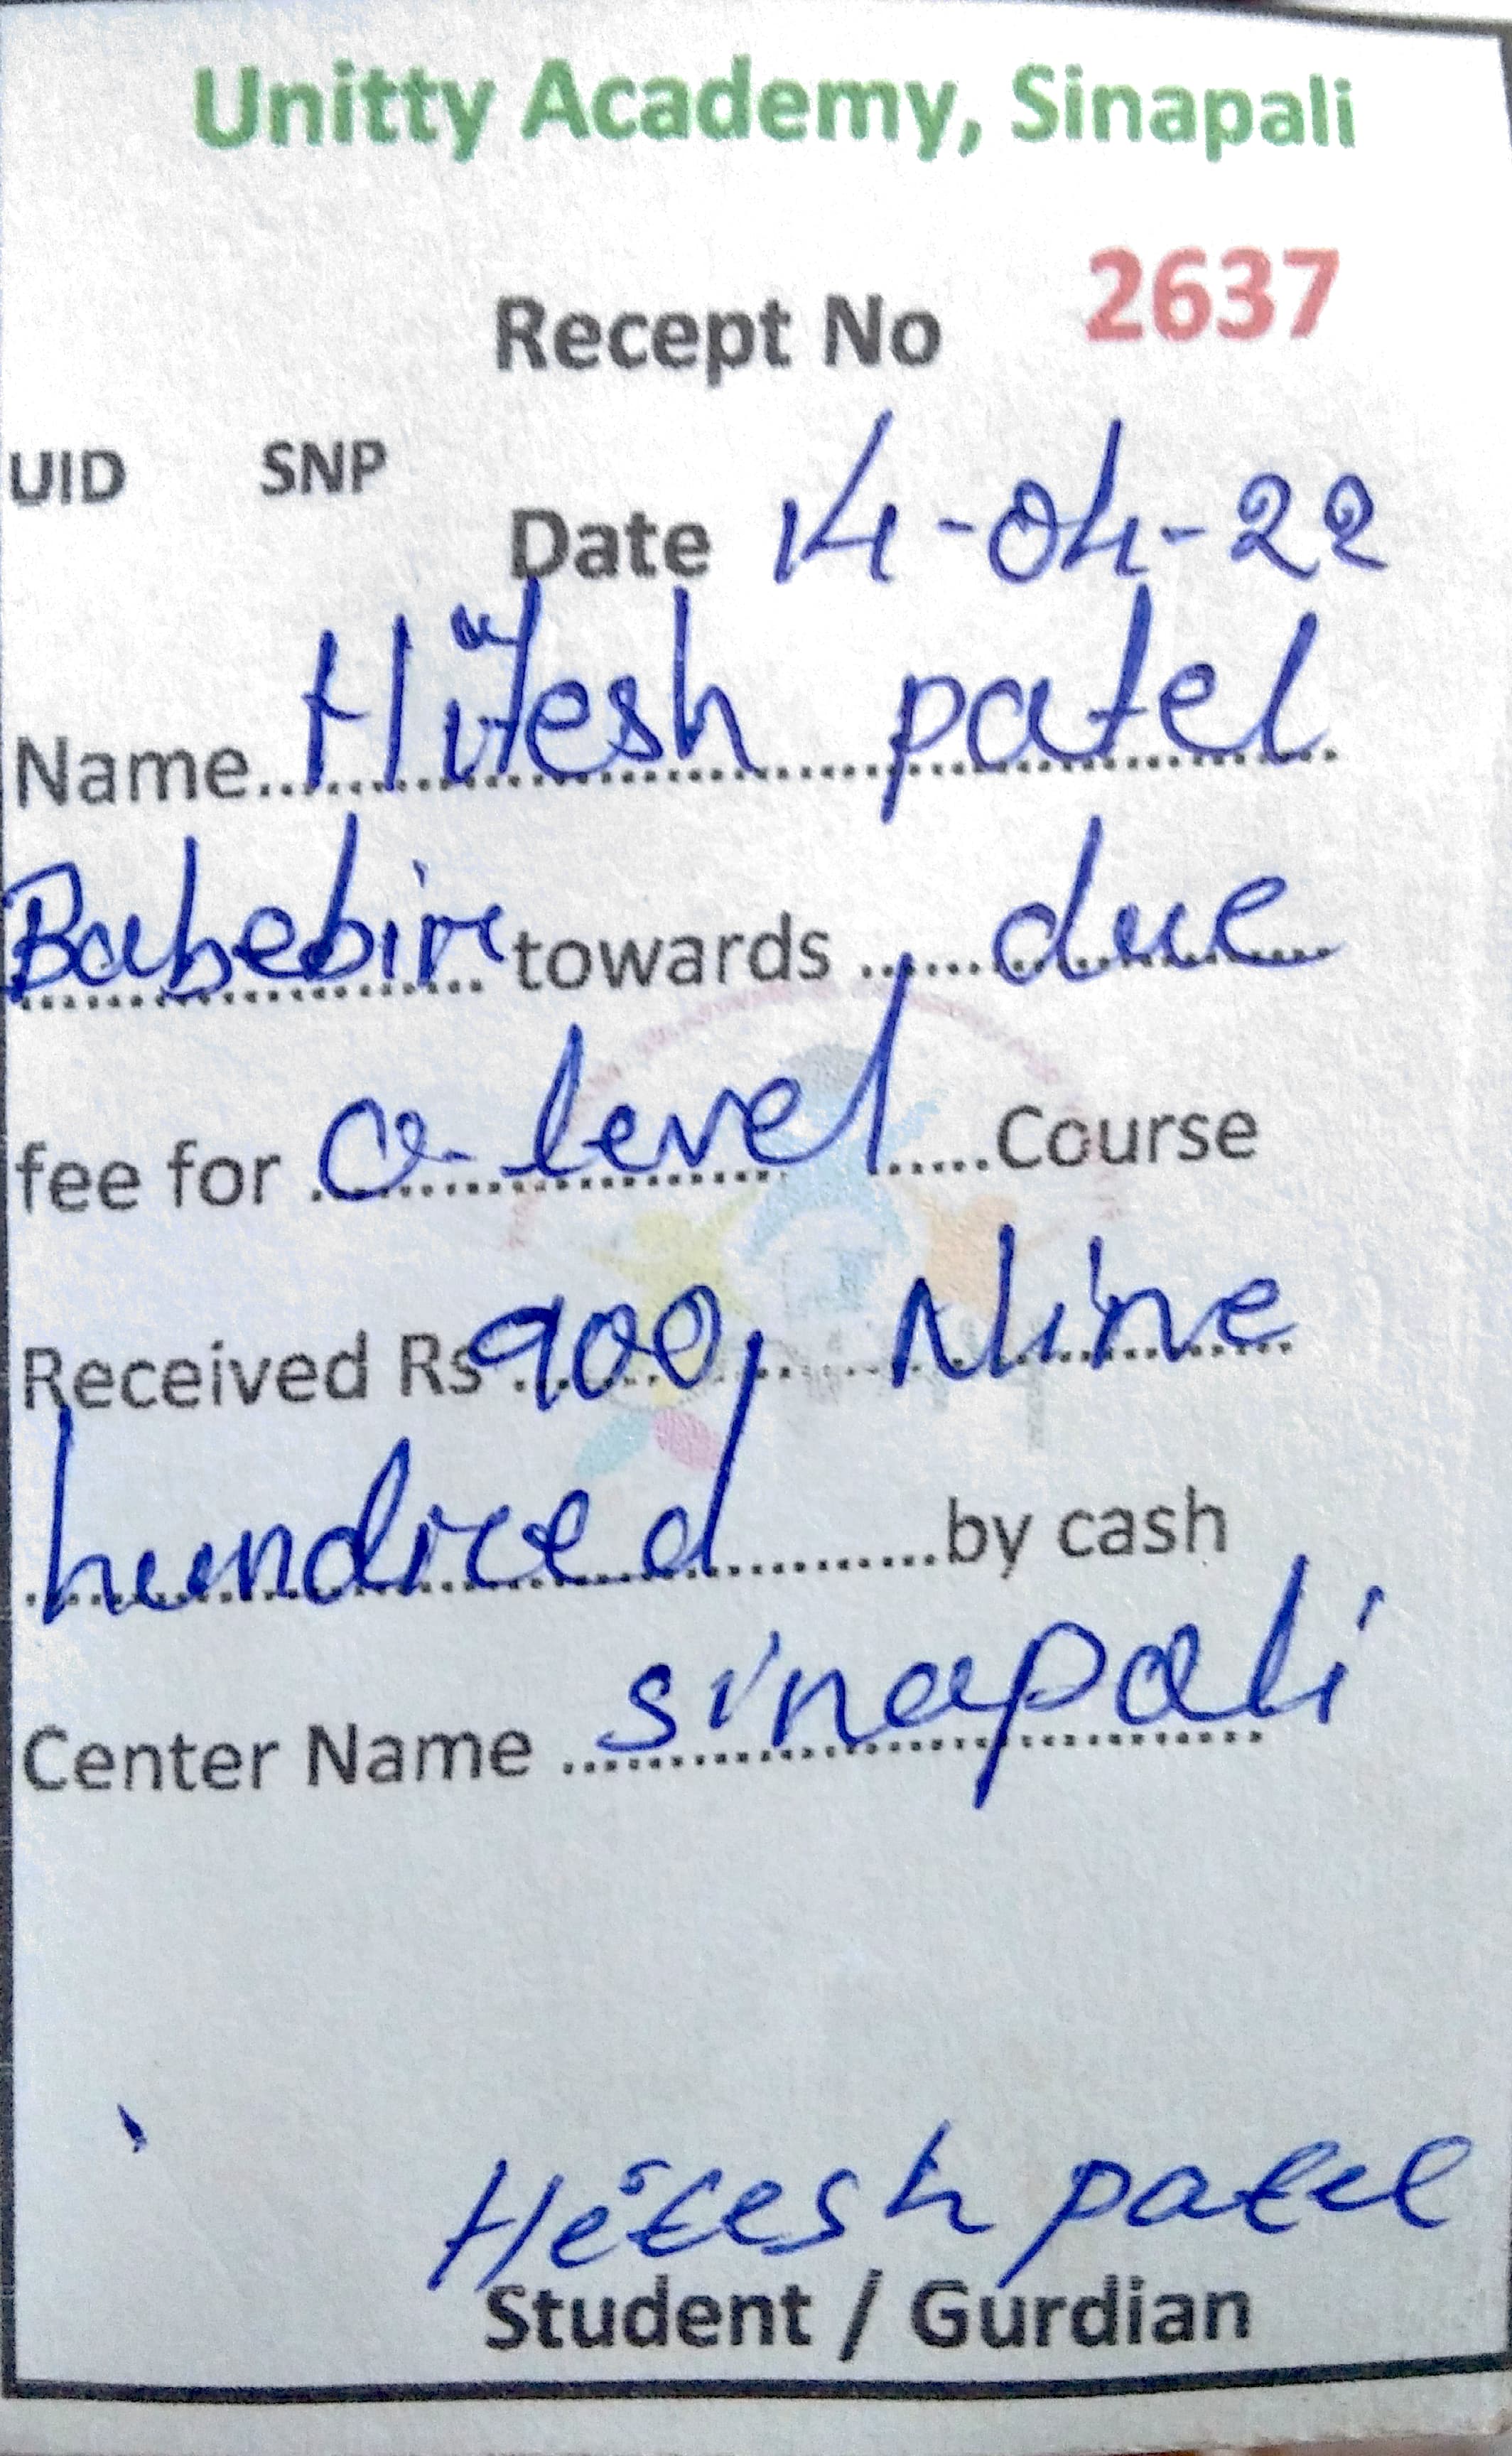 Unitty Academy, Sinapali
Recept No 2637
UID SNP
Date 14-04-22
Name.......Hitesh patel
Babebir towards ...... due
fee for o-level.....Course
Received Rs 900, Nine
hundred..........by cash
Center Name ... sinapali
Hitesh patel
Student / Gurdian